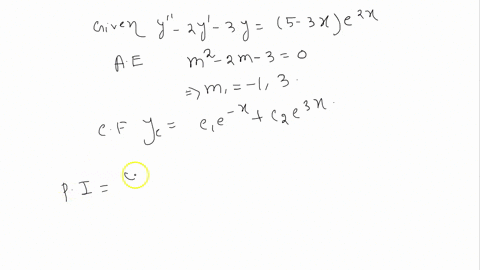 Given y'' - 2y' - 3y = (5-3x)e^{2x}
A.E m^2-2m-3=0
⇒ m, = -1, 3.
C.F y_c = c_1e^{-x} + c_2e^{3x}.
P.I =